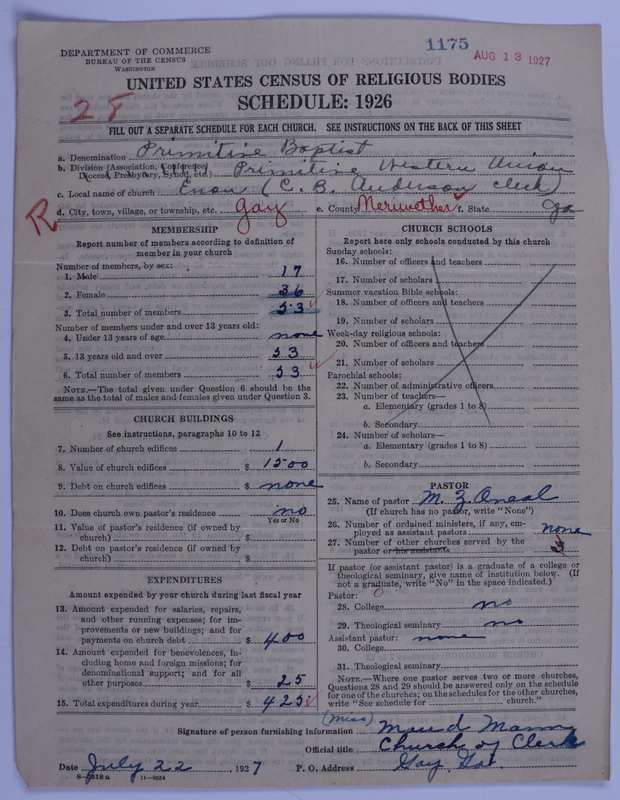 DEPARTMENT OF COMMERCE
BUREAU OF THE CENSUS
WASHINGTON
1175
AUG 13 1927
UNITED STATES CENSUS OF RELIGIOUS BODIES
SCHEDULE: 1926
28
FILL OUT A SEPARATE SCHEDULE FOR EACH CHURCH. SEE INSTRUCTIONS ON THE BACK OF THIS SHEET
a. Denomination Primitive Baptist
b. Division (Association, Conference, Diocese, Presbytery, Synod, etc.) Primitive Western Union
c. Local name of church Enon (C. B. Anderson clerk)
R
d. City, town, village, or township, etc. Gay e. County Meriwether f. State Ga
MEMBERSHIP
Report number of members according to definition of
member in your church
Number of members, by sex:
1. Male 17
2. Female 36
3. Total number of members 53
Number of members under and over 13 years old:
4. Under 13 years of age none
5. 13 years old and over 53
6. Total number of members 53
NOTE.—The total given under Question 6 should be
same as the total of males and females given under Question 3.
CHURCH BUILDINGS
See instructions, paragraphs 10 to 12
7. Number of church edifices 1
8. Value of church edifices $ 1500
9. Debt on church edifices $ none
10. Does church own pastor's residence no
Yes or No
11. Value of pastor's residence (if owned by
church) $
12. Debt on pastor's residence (if owned by
church) $
EXPENDITURES
Amount expended by your church during last fiscal year
13. Amount expended for salaries, repairs,
and other running expenses; for im-
provements or new buildings; and for
payments on church debt $ 400
14. Amount expended for benevolences, in-
cluding home and foreign missions; for
denominational support; and for all
other purposes $ 25
15. Total expenditures during year $ 425
CHURCH SCHOOLS
Report here only schools conducted by this church
Sunday schools:
16. Number of officers and teachers
17. Number of scholars
Summer vacation Bible schools:
18. Number of officers and teachers
19. Number of scholars
Week-day religious schools:
20. Number of officers and teachers
21. Number of scholars
Parochial schools:
22. Number of administrative officers
23. Number of teachers—
a. Elementary (grades 1 to 8)
b. Secondary
24. Number of scholars—
a. Elementary (grades 1 to 8)
b. Secondary
PASTOR
25. Name of pastor M. Z. Oneal
(If church has no pastor, write "None")
26. Number of ordained ministers, if any, em-
ployed as assistant pastors none
27. Number of other churches served by the
pastor or his assistants 3
If pastor (or assistant pastor) is a graduate of a college or
theological seminary, give name of institution below. (If
not a graduate, write "No" in the space indicated.)
Pastor:
28. College no
29. Theological seminary no
Assistant pastor: none
30. College
31. Theological seminary
NOTE.—Where one pastor serves two or more churches,
Questions 28 and 29 should be answered only on the schedule
for one of the churches; on the schedules for the other churches,
write "See schedule for church."
Signature of person furnishing information (Miss) Maud Mann
Official title Church of Clerk
Date July 22 1927 P. O. Address Gay Ga.
8—5518a 11—9664